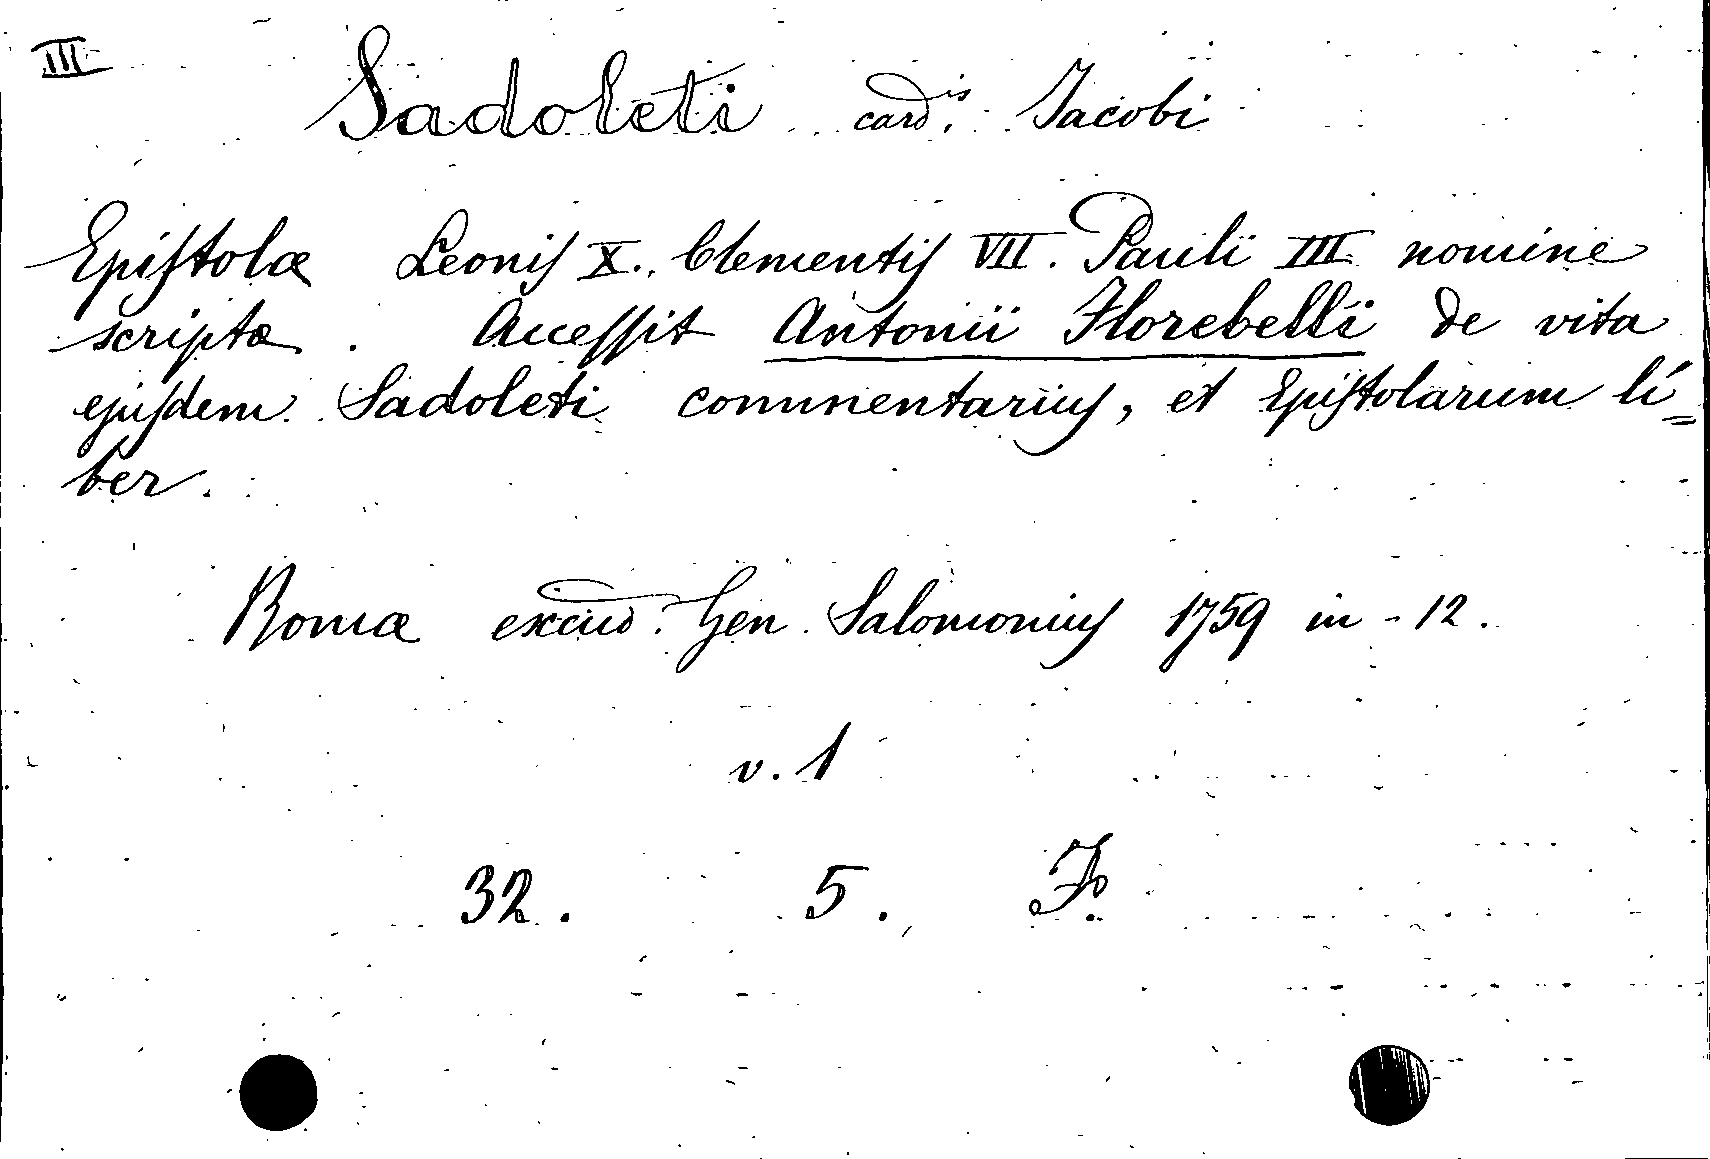 III
Sadoleti card.is Jacobi
Epistolæ Leonis X. Clementis VII. Pauli III nomine
scriptæ. Accessit Antonii Florebelli de vita
ejusdem Sadoleti commentarius, et Epistolarum li=
ber.
Romæ excud. Gen. Salomonius 1759 in-12.
v. 1
32. 5. F.